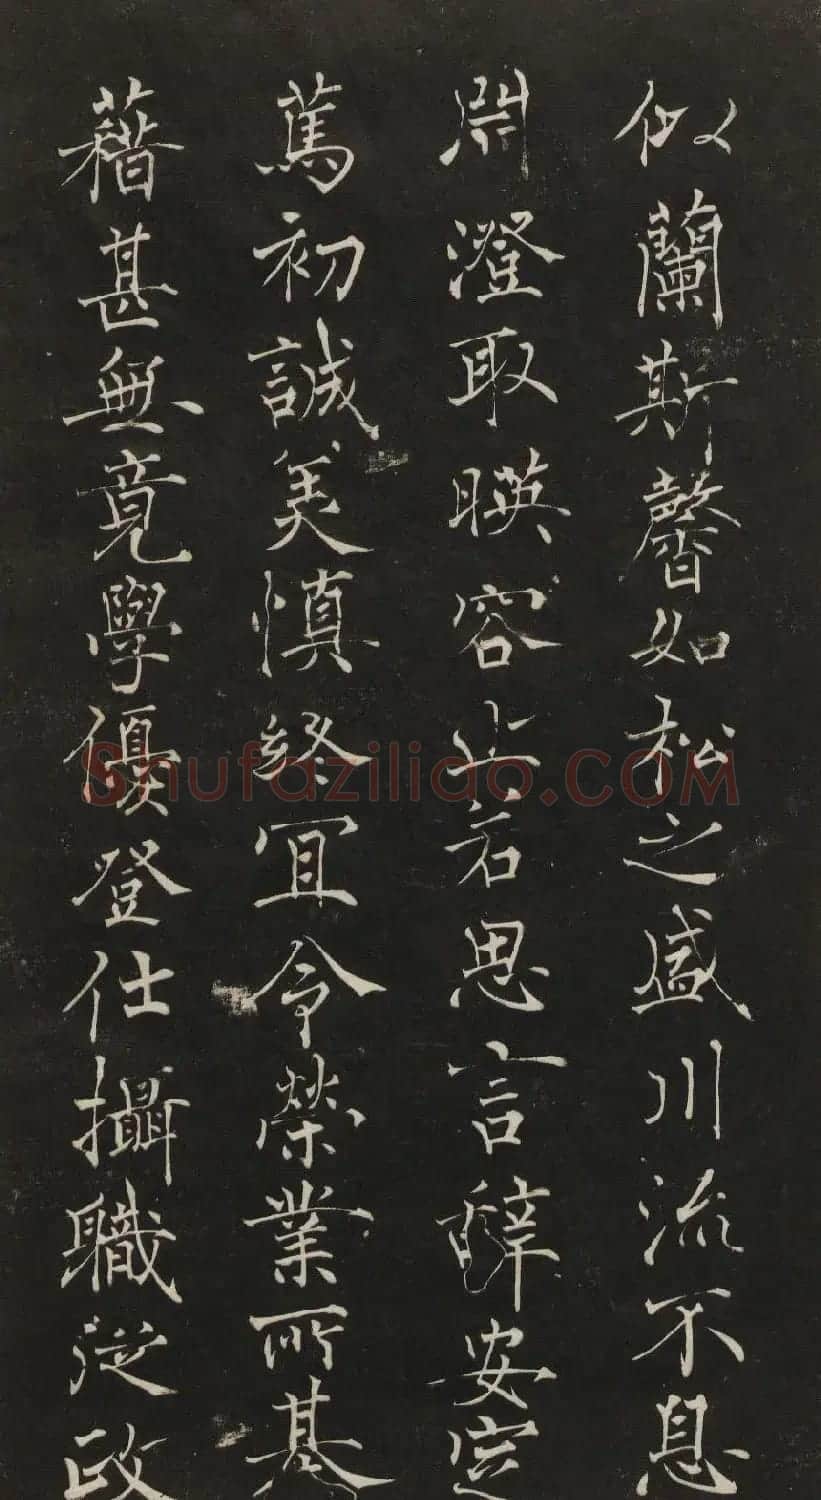 似蘭斯馨如松之盛川流不息
淵澄取暎容止若思言辭安定
篤初誠美慎終冝令榮業所基
藉甚無竟學優登仕攝職從政
Shufaziliao.COM